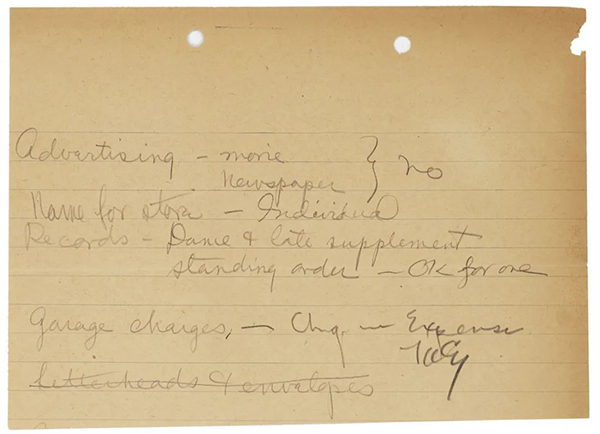 Advertising - movie } no
newspaper
Name for store - Individual
Records - Dance & late supplement
standing order - OK for one
Garage charges, - Chg. - Expense
Letterheads & envelopes